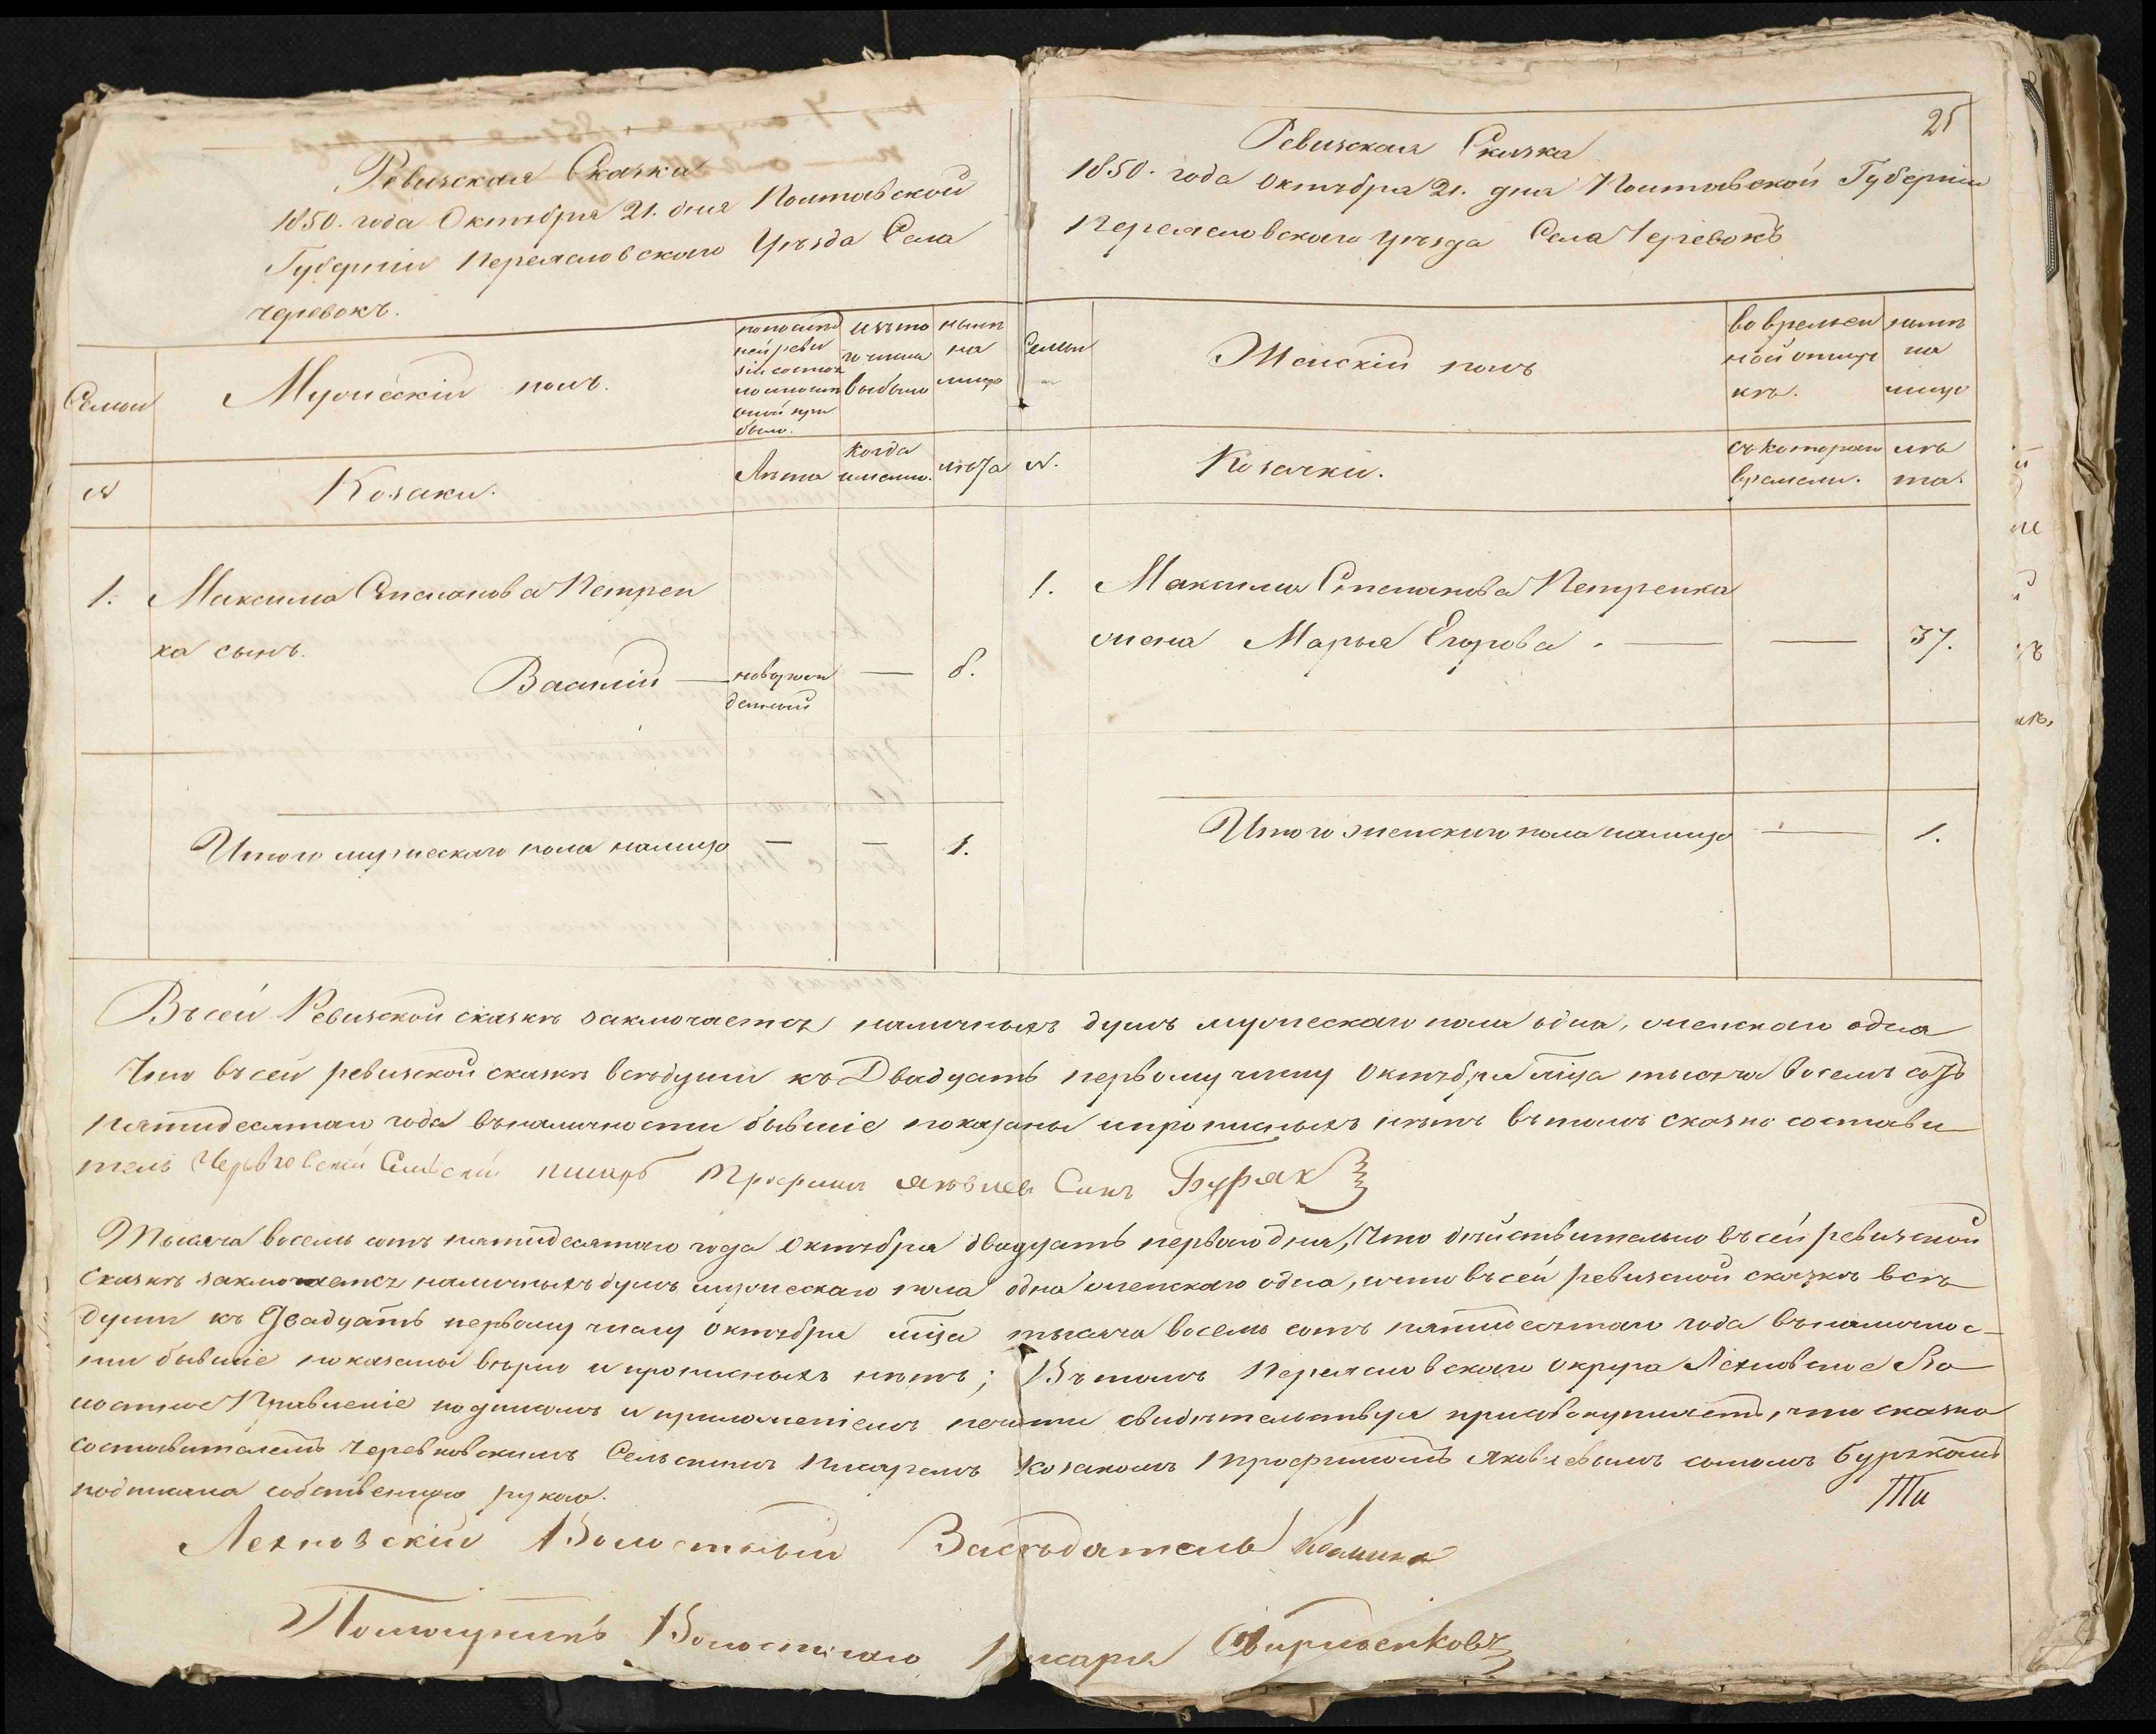 Ревизская Сказка
1850. года Октября 21. дня Полтавской
Губерніи Переяславскаго Уѣзда Села
Черевокъ.
Семьи
Мужескій полъ.
по послѣд
ней реви
зіи состоя
ло и послѣ
оной при
было.
изъ то
го числа
выбыло
нынѣ
на
лицо
№
Козаки.
Лѣта
когда
имянно.
лѣта
1. Максима Степанова Петрен
ка сынъ.
Василій — новорож — 8.
денный
Итого мужескаго пола налицо — — 1.
25
Ревизская Сказка
1850. года Октября 21. дня Полтавской Губерніи
Переясловскаго уѣзда Села Черевокъ
Семьи
Женскій полъ
во времен
ной отлуч
кѣ.
нынѣ
на
лицо
№.
Козачки.
съ котораго
времени.
лѣ
та.
1. Максима Степанова Петренка
жена Марья Егорова. — — 37.
Итого женскаго пола налицо — 1.
Въ сей Ревизской сказкѣ заключается наличныхъ душъ мужескаго пола одна, женскаго одна
Что въ сей ревизской сказкѣ всѣ души къ Двадцать первому числу Октября мѣсяца тысяча восемь сотъ
пятидесятаго года въ наличности бывшіе показаны и прописныхъ нѣтъ въ томъ сказко состави
тель Черевковскій Сельскій писарь Трофимъ Яковлевъ Синъ Буряк
Тысяча восемь сотъ пятидесятаго года Октября двадцать перваго дня, Что дѣйствительно въ сей ревизской
сказкѣ заключается наличныхъ душъ мужескаго пола одна женскаго одна, и что въ сей ревизской сказкѣ всѣ
души къ Двадцать первому числу Октября мѣсяца тысяча восемь сотъ пятидесятаго года въ наличнос-
ти бывшіе показаны вѣрно и прописныхъ нѣтъ; Въ томъ Переясловскаго Округа Лехновское Во
лостное Правленіе подписомъ и приложеніемъ печати свидѣтельствуя присовокупляетъ, что сказко
составителемъ Черевковскимъ Сельскимъ Писаремъ Козакомъ Трофимомъ Яковлевымъ сыномъ Бурякомъ
подписана собственною рукою.
Ти
Лехновскій Волостный Засѣдатель
Помощникъ Волостнаго Писаря